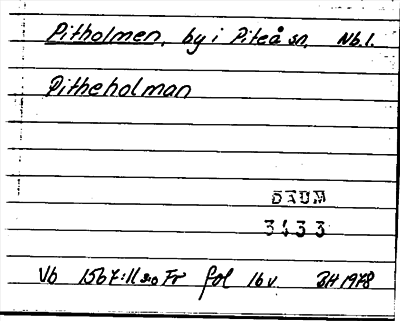 Pitholmen, by i Piteå sn, Nb.l.
Pitheholman
DAUM
3433
Vb 1567:11 s:o Fr fol 16 v. BH 1978